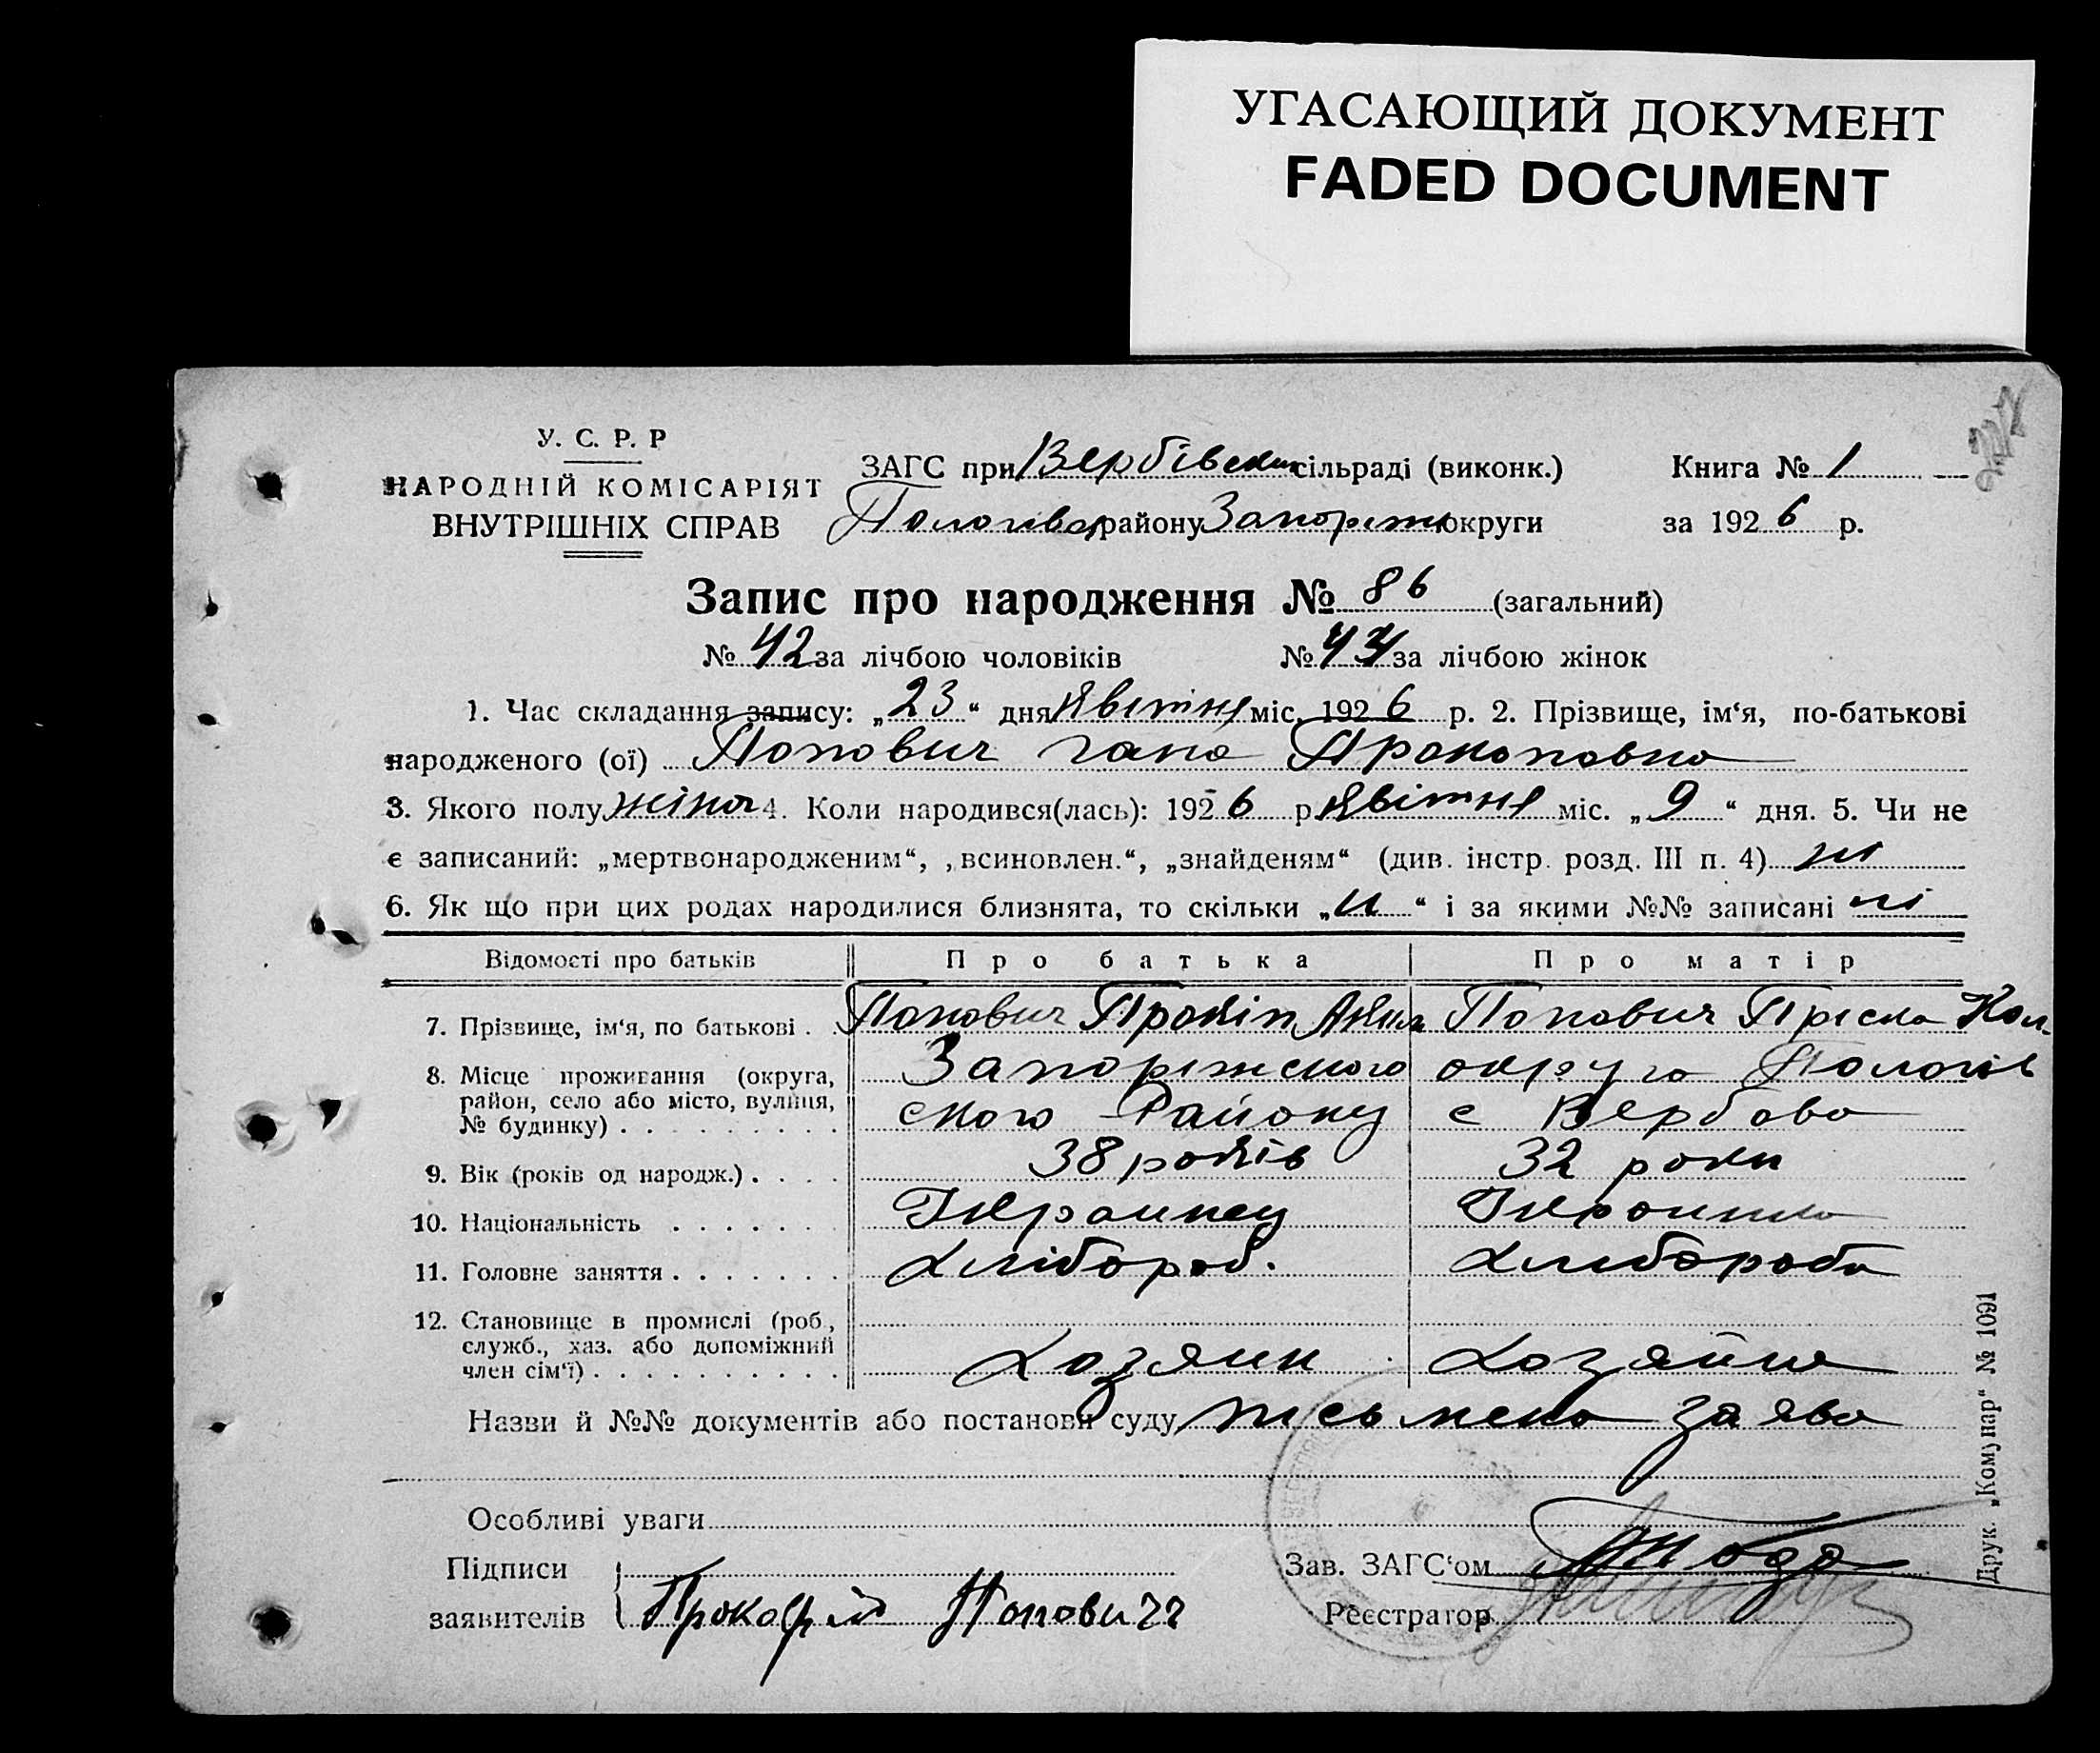 УГАСАЮЩИЙ ДОКУМЕНТ
FADED DOCUMENT
У. С. Р. Р
НАРОДНІЙ КОМІСАРІЯТ
ВНУТРІШНІХ СПРАВ
ЗАГС при Вербівськ сільраді (виконк.)
Пологівск району Запоріжж округи
Книга № 1
за 1926 р.
Запис про народження № 86 (загальний)
№ 42 за лічбою чоловіків № 44 за лічбою жінок
1. Час складання запису: „23“ дня Квітня міс. 1926 р. 2. Прізвище, ім‘я, по-батькові
народженого (ої) Попович гана Прокоповна
3. Якого полу жіноч 4. Коли народився(лась): 1926 р. Квітня міс. „9“ дня. 5. Чи не
є записаний: „мертвонародженим“, „всиновлен.“, „знайденям“ (див. інстр. розд. III п. 4) ні
6. Як що при цих родах народилися близнята, то скільки „н“ і за якими №№ записані ні
Відомості про батьків Про батька Про матір
7. Прізвище, ім‘я, по батькові . . Попович Прокіп Попович
8. Місце проживання (округа, район, село або місто, вулиця, № будинку) . . . . . . . . . Запоріжского округа Пологів
ского Району с Вербова
9. Вік (років од народж.) . . . . 38 років 32 роки
10. Національність . . . . . . . Українец Українка
11. Головне заняття . . . . . . . Хлібороб. Хлибороба
12. Становище в промислі (роб., служб., хаз. або допоміжний член сім‘ї) . . . . . . . . . . Хозяин Хозяйка
Назви й №№ документів або постанови суду письмена заява
Особливі уваги
Підписи
заявителів Прокофій Попович
Зав. ЗАГС‘ом
Реєстратор
Друк. „Комунар“ № 1091